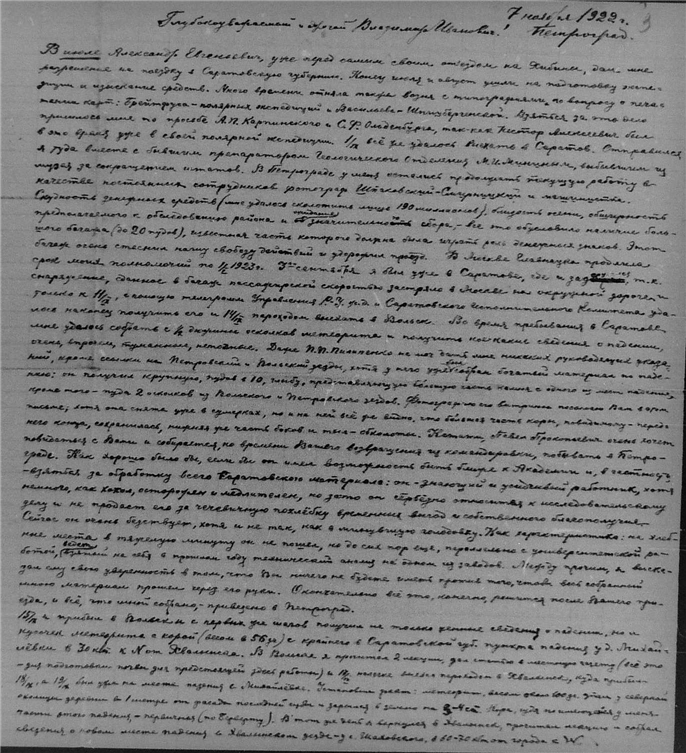 7 ноября 1922 г.
Петроград.
Глубокоуважаемый и дорогой Владимир Иванович!
В июле Александр Евгеньевич, уже перед самым своим отъездом на Хибины, дал мне
разрешение на поездку в Саратовскую губернию. Конец июля и август ушли на подготовку экспе-
диции и изыскание средств. Много времени отняла также возня с типографиями по вопросу о печа-
тании карт: Грейтруда-полярных экспедиций и Васильева-Шпицбергенской. Взяться за это дело
пришлось мне по просьбе А.П. Карпинского и С.Ф. Ольденбурга, так-как Нестор Алексеевич был
в это время уже в своей полярной экспедиции. 1/IX всё же удалось выехать в Саратов. Отправился
я туда вместе с бывшим препаратором Геологического Отделения М.И. выбывшим из
музея за сокращением штатов. В Петрограде у меня остались продолжать текущую работу в
качестве постоянных сотрудников фотограф и машинистка.
Скудность денежных средств (мне удалось сколотить лишь 190 миллионов), близость осени, обширность
предполагаемого к обследованию района и значительность сборов, - всё это обусловило наличие боль-
шого багажа (до 20 пудов), известная часть которого должна была играть роль денежных знаков. Этот
багаж очень стеснил нашу свободу действий и удорожил проезд. В Москве Главнаука продлила
срок моих полномочий по 1/I 1923 г. 3го сентября я был уже в Саратове, где и т.к.
снаряжение, сданное в багаж пассажирской скоростью застряло в Москве на окружной дороге, и
только к 11/IX, с помощью телеграмм Управления Р.-У. ж.д. и Саратовского исполнительного Комитета уда-
лось наконец получить его и 14/IX пароходом выехать в Вольск. Во время пребывания в Саратове
мне удалось собрать с 1/2 дюжины осколков метеорита и получить кое-какие сведения о падении,
очень, впрочем, туманные, неполные. Даже П.П. Пилипенко не мог дать мне никаких руководящих указа-
ний, кроме ссылки на Петровский и Вольский уезды, хотя у него уже был собран богатый материал по паде-
нию: он получил крупную, пудов в 10, глыбу, представляющую большую часть камня с одного из мест падения,
кроме того - пуда 2 осколков из Вольского и Петровского уездов. Фотографию его витрины посылаю Вам в этом
письме, хотя она снята уже в сумерках, но и на ней всё же видно, что большая часть коры, повидимому - перед-
него конца, сохранилась, нижняя же часть боков и тыл - обколоты. Кстати, Павел Прокопьевич очень хочет
повидаться с Вами и собирается, ко времени Вашего возвращения из командировки, побывать в Петро-
граде. Как хорошо было бы, если бы он имел возможность быть ближе к Академии и, в частности,
-взяться за обработку всего Саратовского материала: он - знающий и усидчивый работник, хотя
немного, как хохол, осторожен и медлителен, но зато он серьёзно относится к исследовательскому
делу и не продаст его за чечевичную похлёбку временных выгод и собственного благополучия.
Сейчас он очень бедствует, хотя и не так, как в минувшую голодовку. Как характеристика: на хлеб-
ные места в тяжелую минуту он не пошел, но до сих пор ещё, параллельно с университетской ра-
ботой, ведет взятый на себя в прошлом году технический анализ на одном из заводов. Между прочим, я выска-
зал ему свою уверенность в том, что Вы ничего не будете иметь против того, чтобы весь собранный
мною материал прошел через его руки. Окончательно всё это, конечно, решится после Вашего прие-
зда, и всё, что мной собрано, - привезено в Петроград.
15/IX я прибыл в Вольск и с первых же шагов получил не только ценные сведения о падении, но и
кусочек метеорита с корой (весом в 56 гр) с крайнего в Саратовской губ. пункта падения у д. Михай-
лёвки в 30 км к N от Хвалынска. В Вольске я прочитал 2 лекции, дал статью в местную газету (всё это
-для подготовки почвы для предстоящей здесь работы) и 17/IX выехал в Хвалынск, куда прибыл
18/IX, а 19/IX был уже на месте падения в Михайлёвке. метеорит, весом около пуда, упал у северной
околицы деревни в 1 метре от усадьбы и зарылся в землю на
часть этого падения - первичная (по Бережту). В тот же день я вернулся в Хвалынск, прочитал лекцию и собрал
сведения о новом месте падения в Хвалынском уезде - у с. в 25-30 км от города к W.